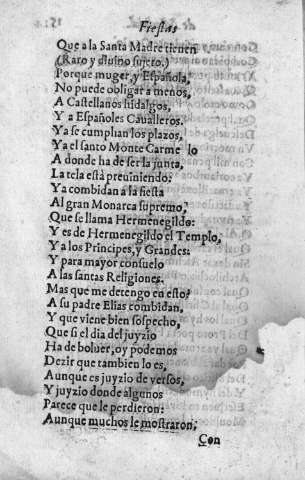 Fiestas
Que a la Santa Madre tienen
(Raro y diuino sujeto.)
Porque muger, y Española,
No puede obligar a menos,
A Castellanos hidalgos,
Y a Españoles Caualleros.
Ya se cumplian los plazos,
Ya el santo Monte Carme lo
A donde ha de ser la junta,
La tela està preuiniendo:
Ya combidan a la fiesta
Al gran Monarca supremo,
Que se llama Hermenegildo:
Y es de Hermenegildo el Templo,
Y a los Principes, y Grandes:
Y para mayor consuelo
A las santas Religiones.
Mas que me detengo en esto?
A su padre Elias combidan,
Y que viene bien sospecho,
Que si el dia del juyzio
Ha de boluer, oy podemos
Dezir que tambien lo es,
Aunque es juyzio de versos,
Y juyzio donde algunos
Parece que le perdieron:
Aunque muchos le mostraron;
Con